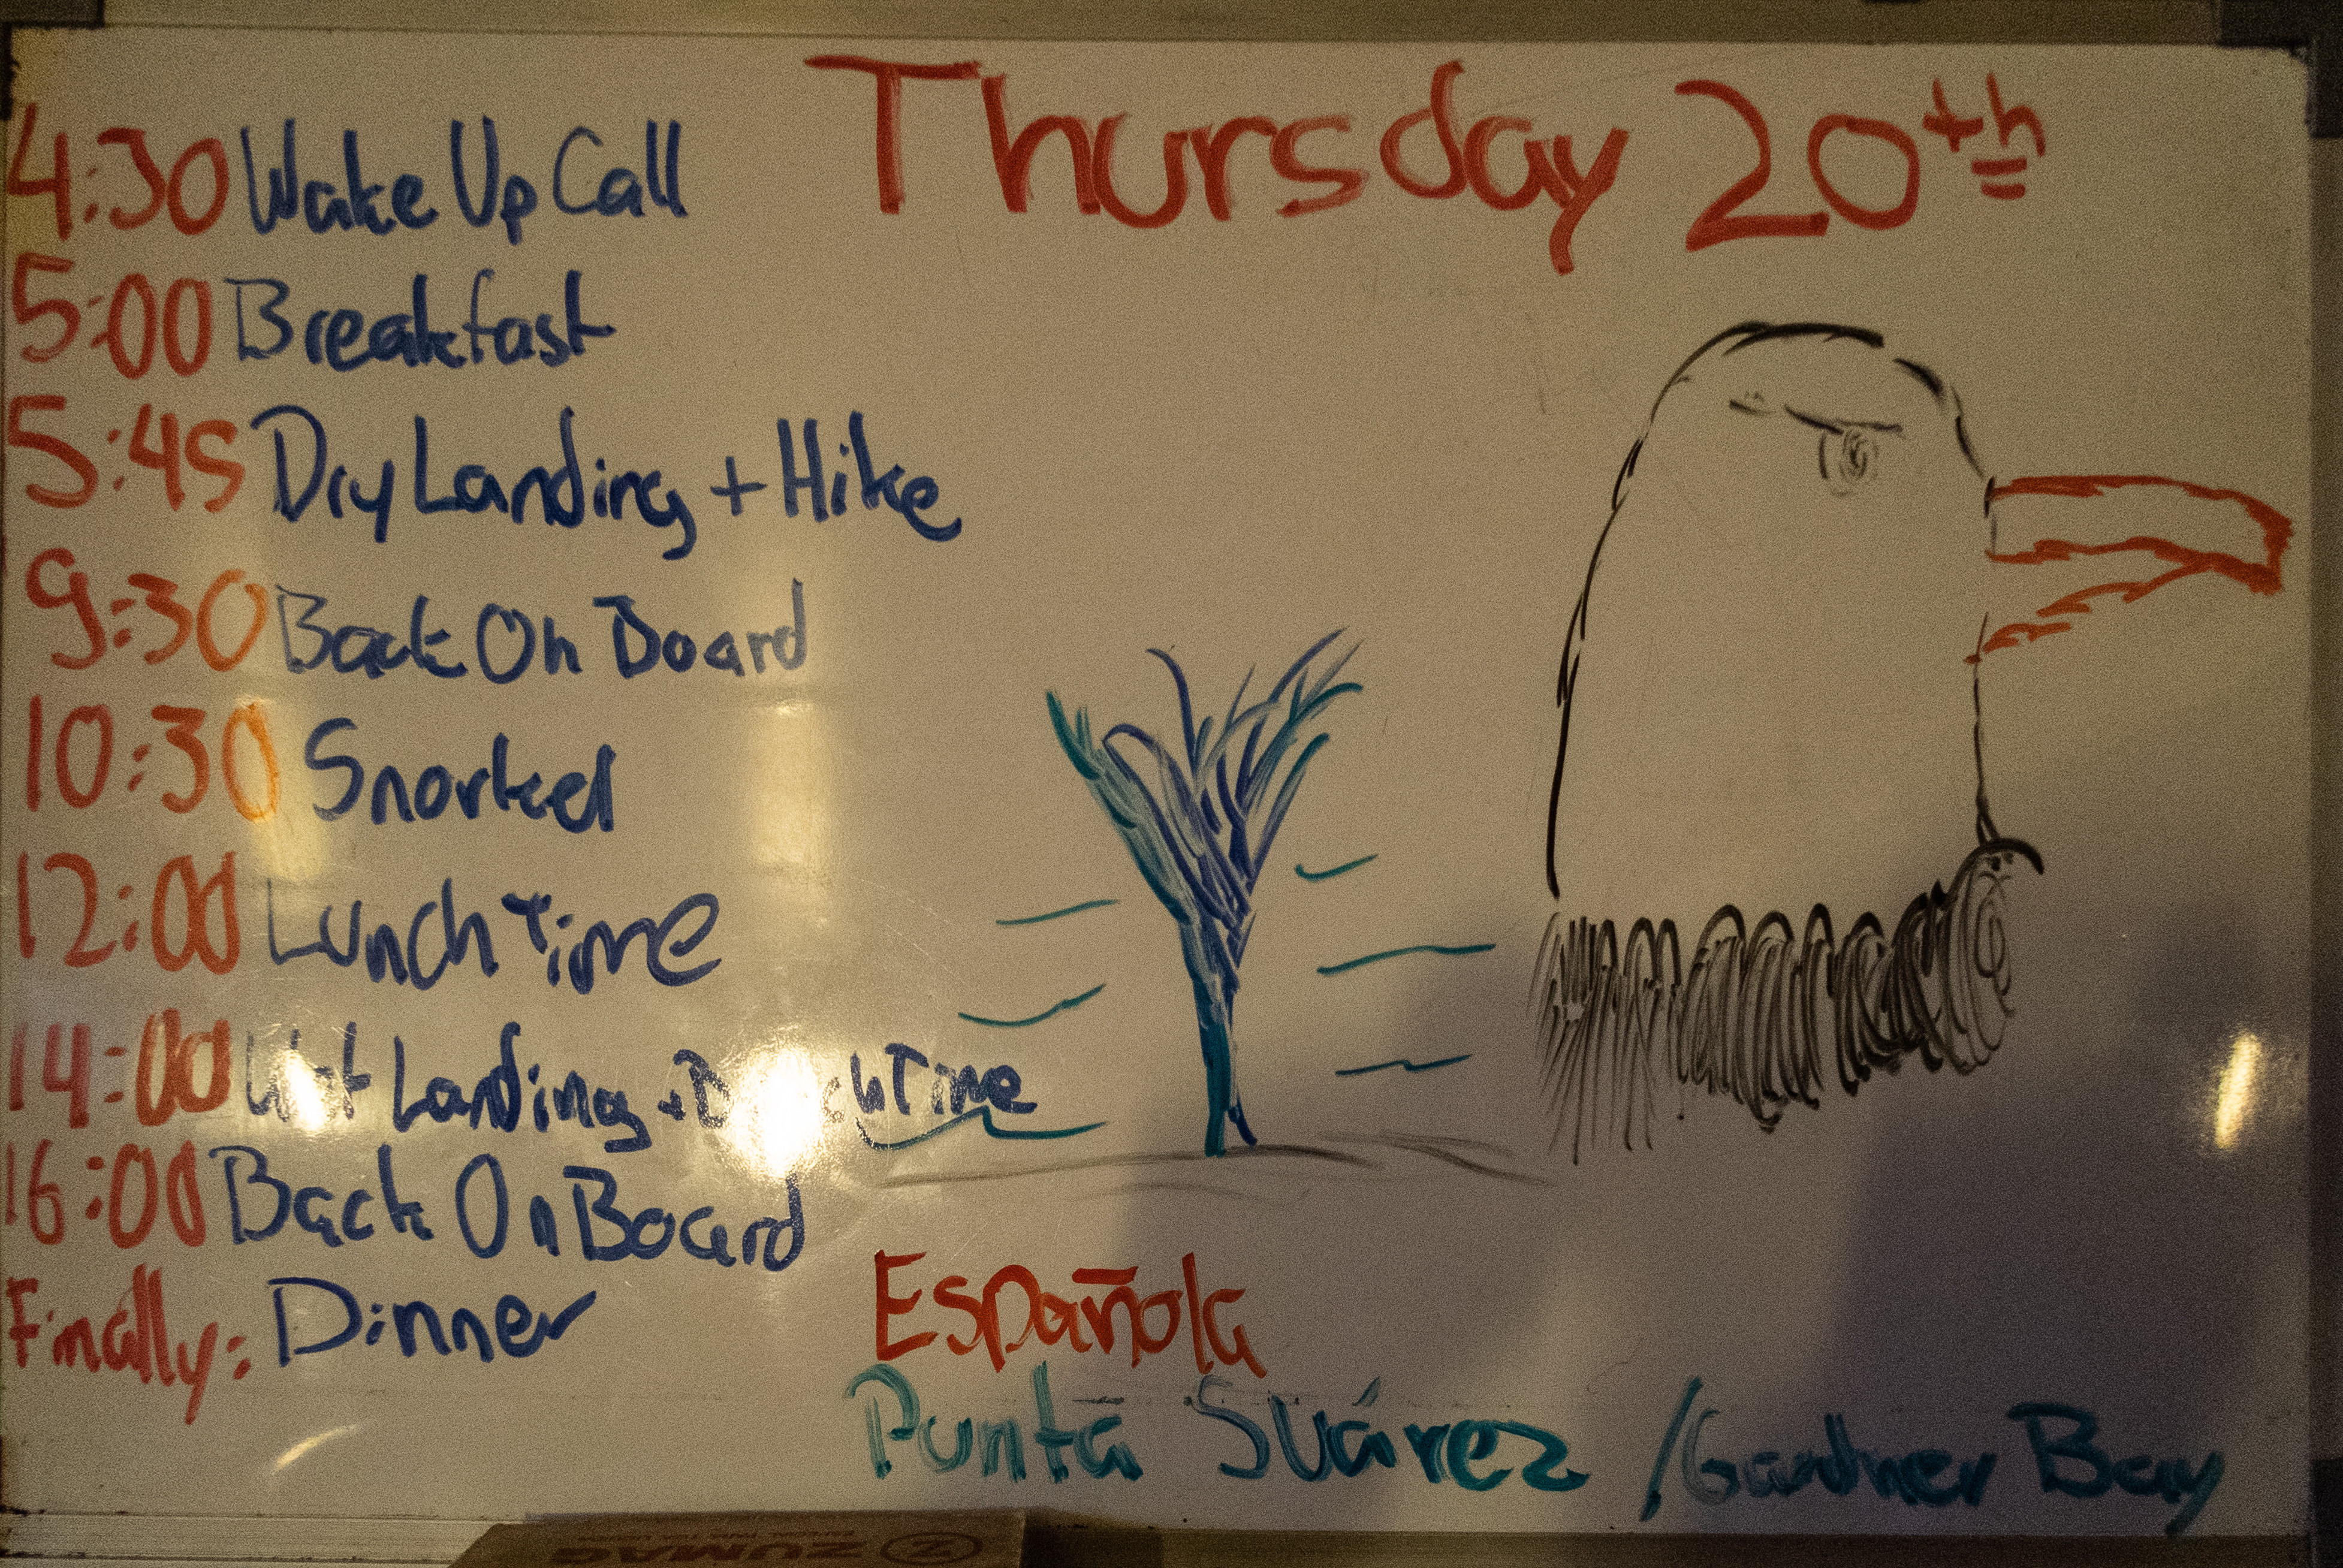 Thursday 20th
4:30 Wake Up Call
5:00 Breakfast
5:45 Dry Landing + Hike
9:30 Back On Board
10:30 Snorkel
12:00 Lunch Time
14:00 Wet Landing + Beach Time
16:00 Back On Board
Finally: Dinner
Española
Punta Suárez / Gardner Bay
ZUMAG